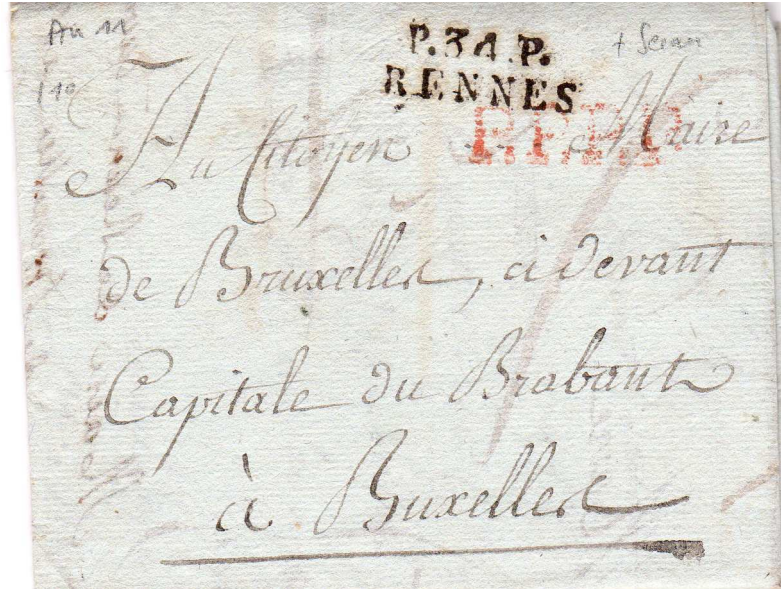 An 11
P.34.P.
+ Sceau
RENNES
P.P.P.P
Au Citoyen Maire
de Bruxelles, ci devant
Capitale du Brabant
à Buxelles